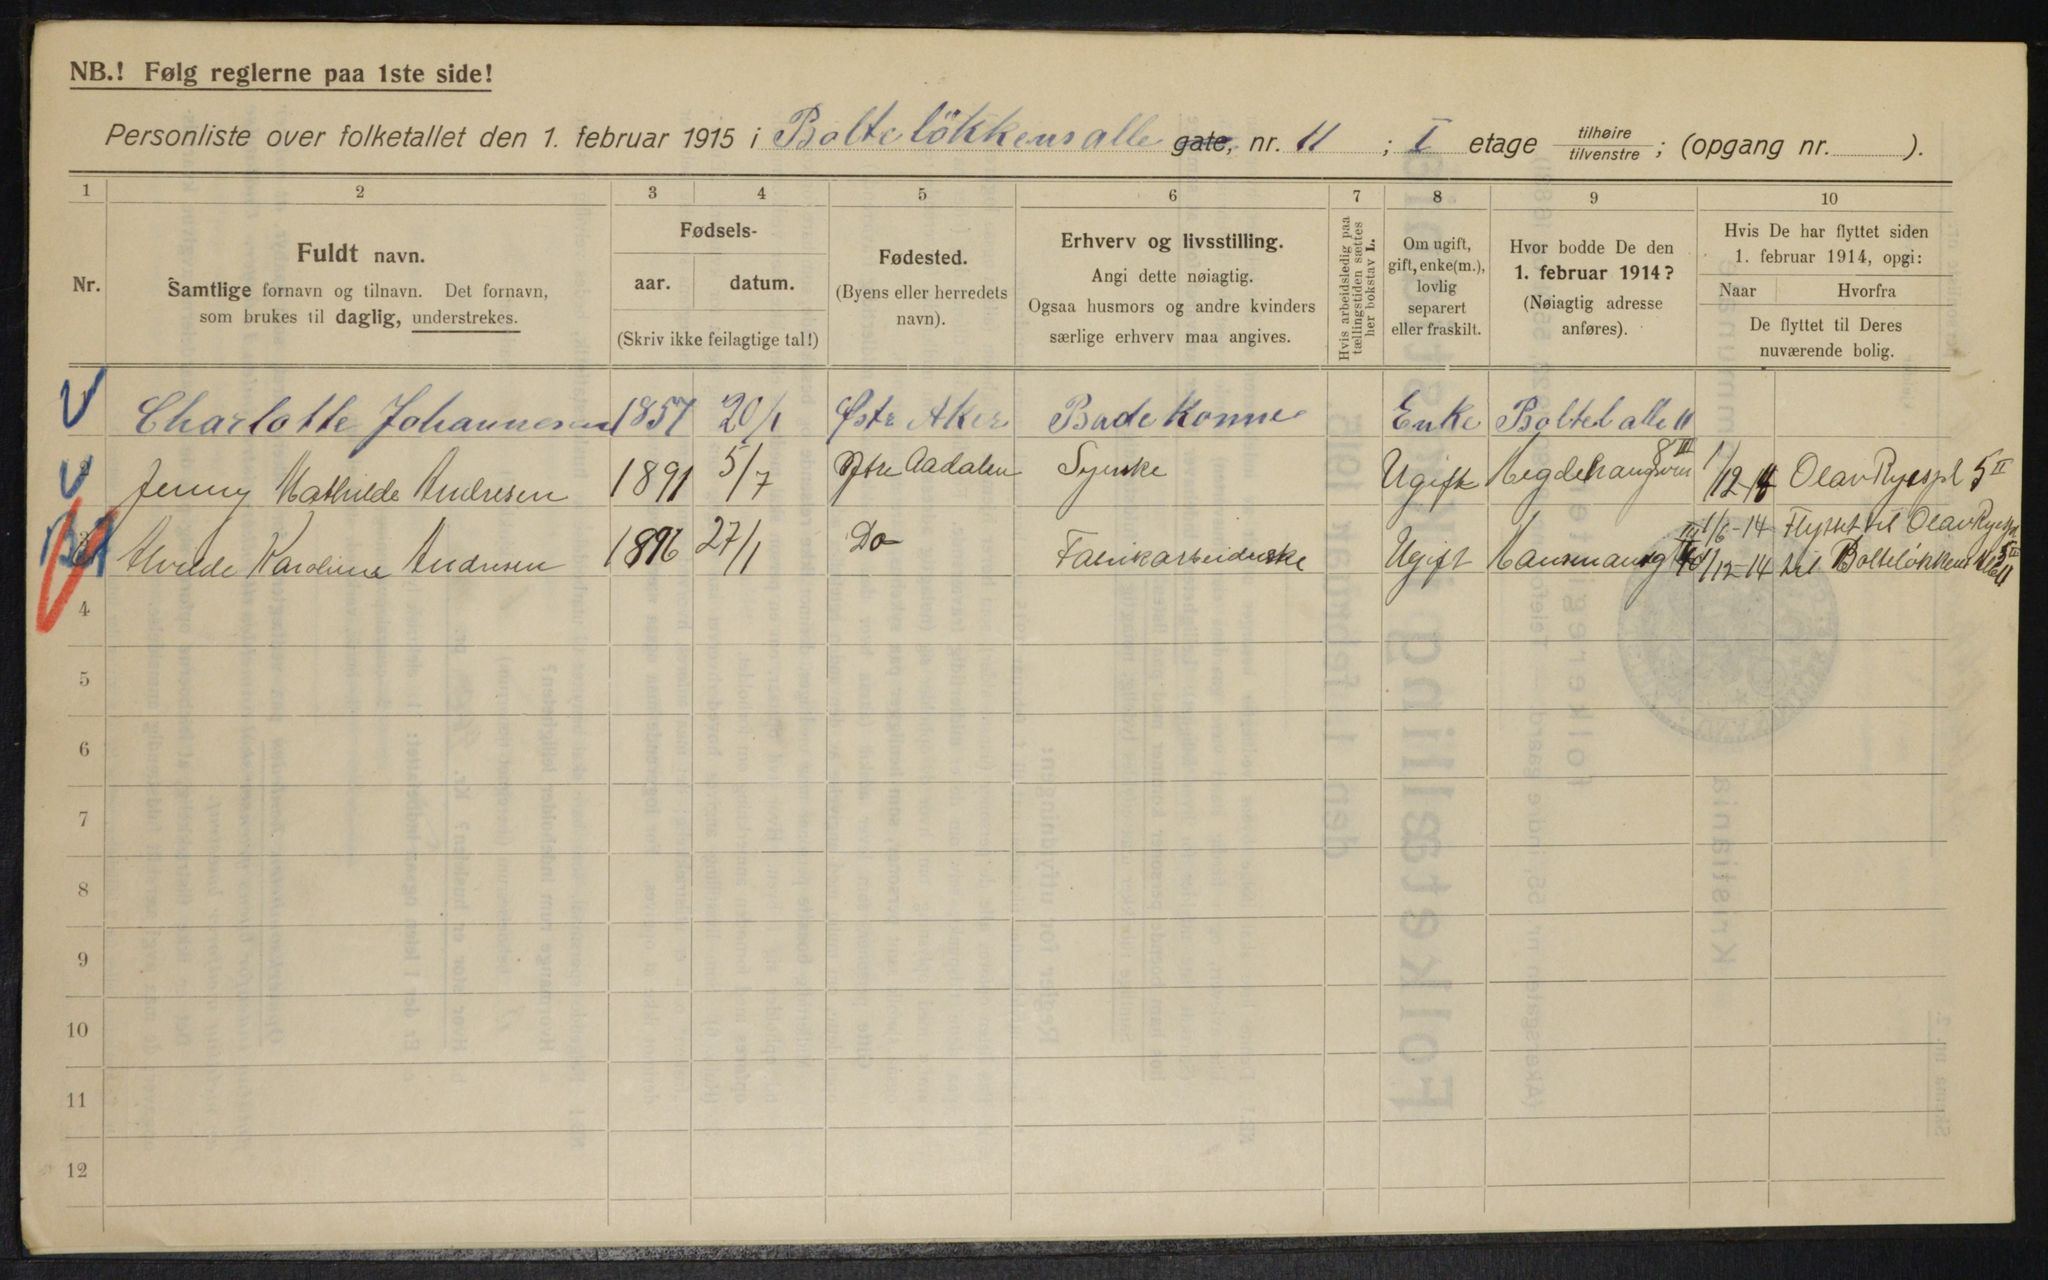 NB.! Følg reglerne paa 1ste side!
Personliste over folketallet den 1. februar 1915 i Bolteløkkens alle gate, nr. 11 ; I etage tilhøire / tilvenstre ; (opgang nr. ).
1 2 3 4 5 6 7 8 9 10
Nr.
Fuldt navn.
Samtlige fornavn og tilnavn. Det fornavn,
som brukes til daglig, understrekes.
Fødsels-
aar. datum.
(Skriv ikke feilagtige tal!)
Fødested.
(Byens eller herredets
navn).
Erhverv og livsstilling.
Angi dette nøiagtig.
Ogsaa husmors og andre kvinders
særlige erhverv maa angives.
Hvis arbeidsledig paa
tællingstiden sættes
her bokstav L.
Om ugift,
gift, enke(m.),
lovlig
separert
eller fraskilt.
Hvor bodde De den
1. februar 1914?
(Nøiagtig adresse
anføres).
Hvis De har flyttet siden
1. februar 1914, opgi:
Naar Hvorfra
De flyttet til Deres
nuværende bolig.
Charlotte Johannesen 1857 20/1 Østr Aker Badekonne Enke Boltel alle 11
Jenny Mathilde Andresen 1891 5/7 Ytre Aadalen Syerske Ugift 8 III 1/12-14 Olav Ryespl 5 II
3 Karoline Andresen 1896 27/1 Do Fabrikarbeiderske Ugift 1/6-14 Flyttet til Olav Ryespl 5 II
1/12-14 til Bolteløkkens Alle 11
4
5
6
7
8
9
10
11
12